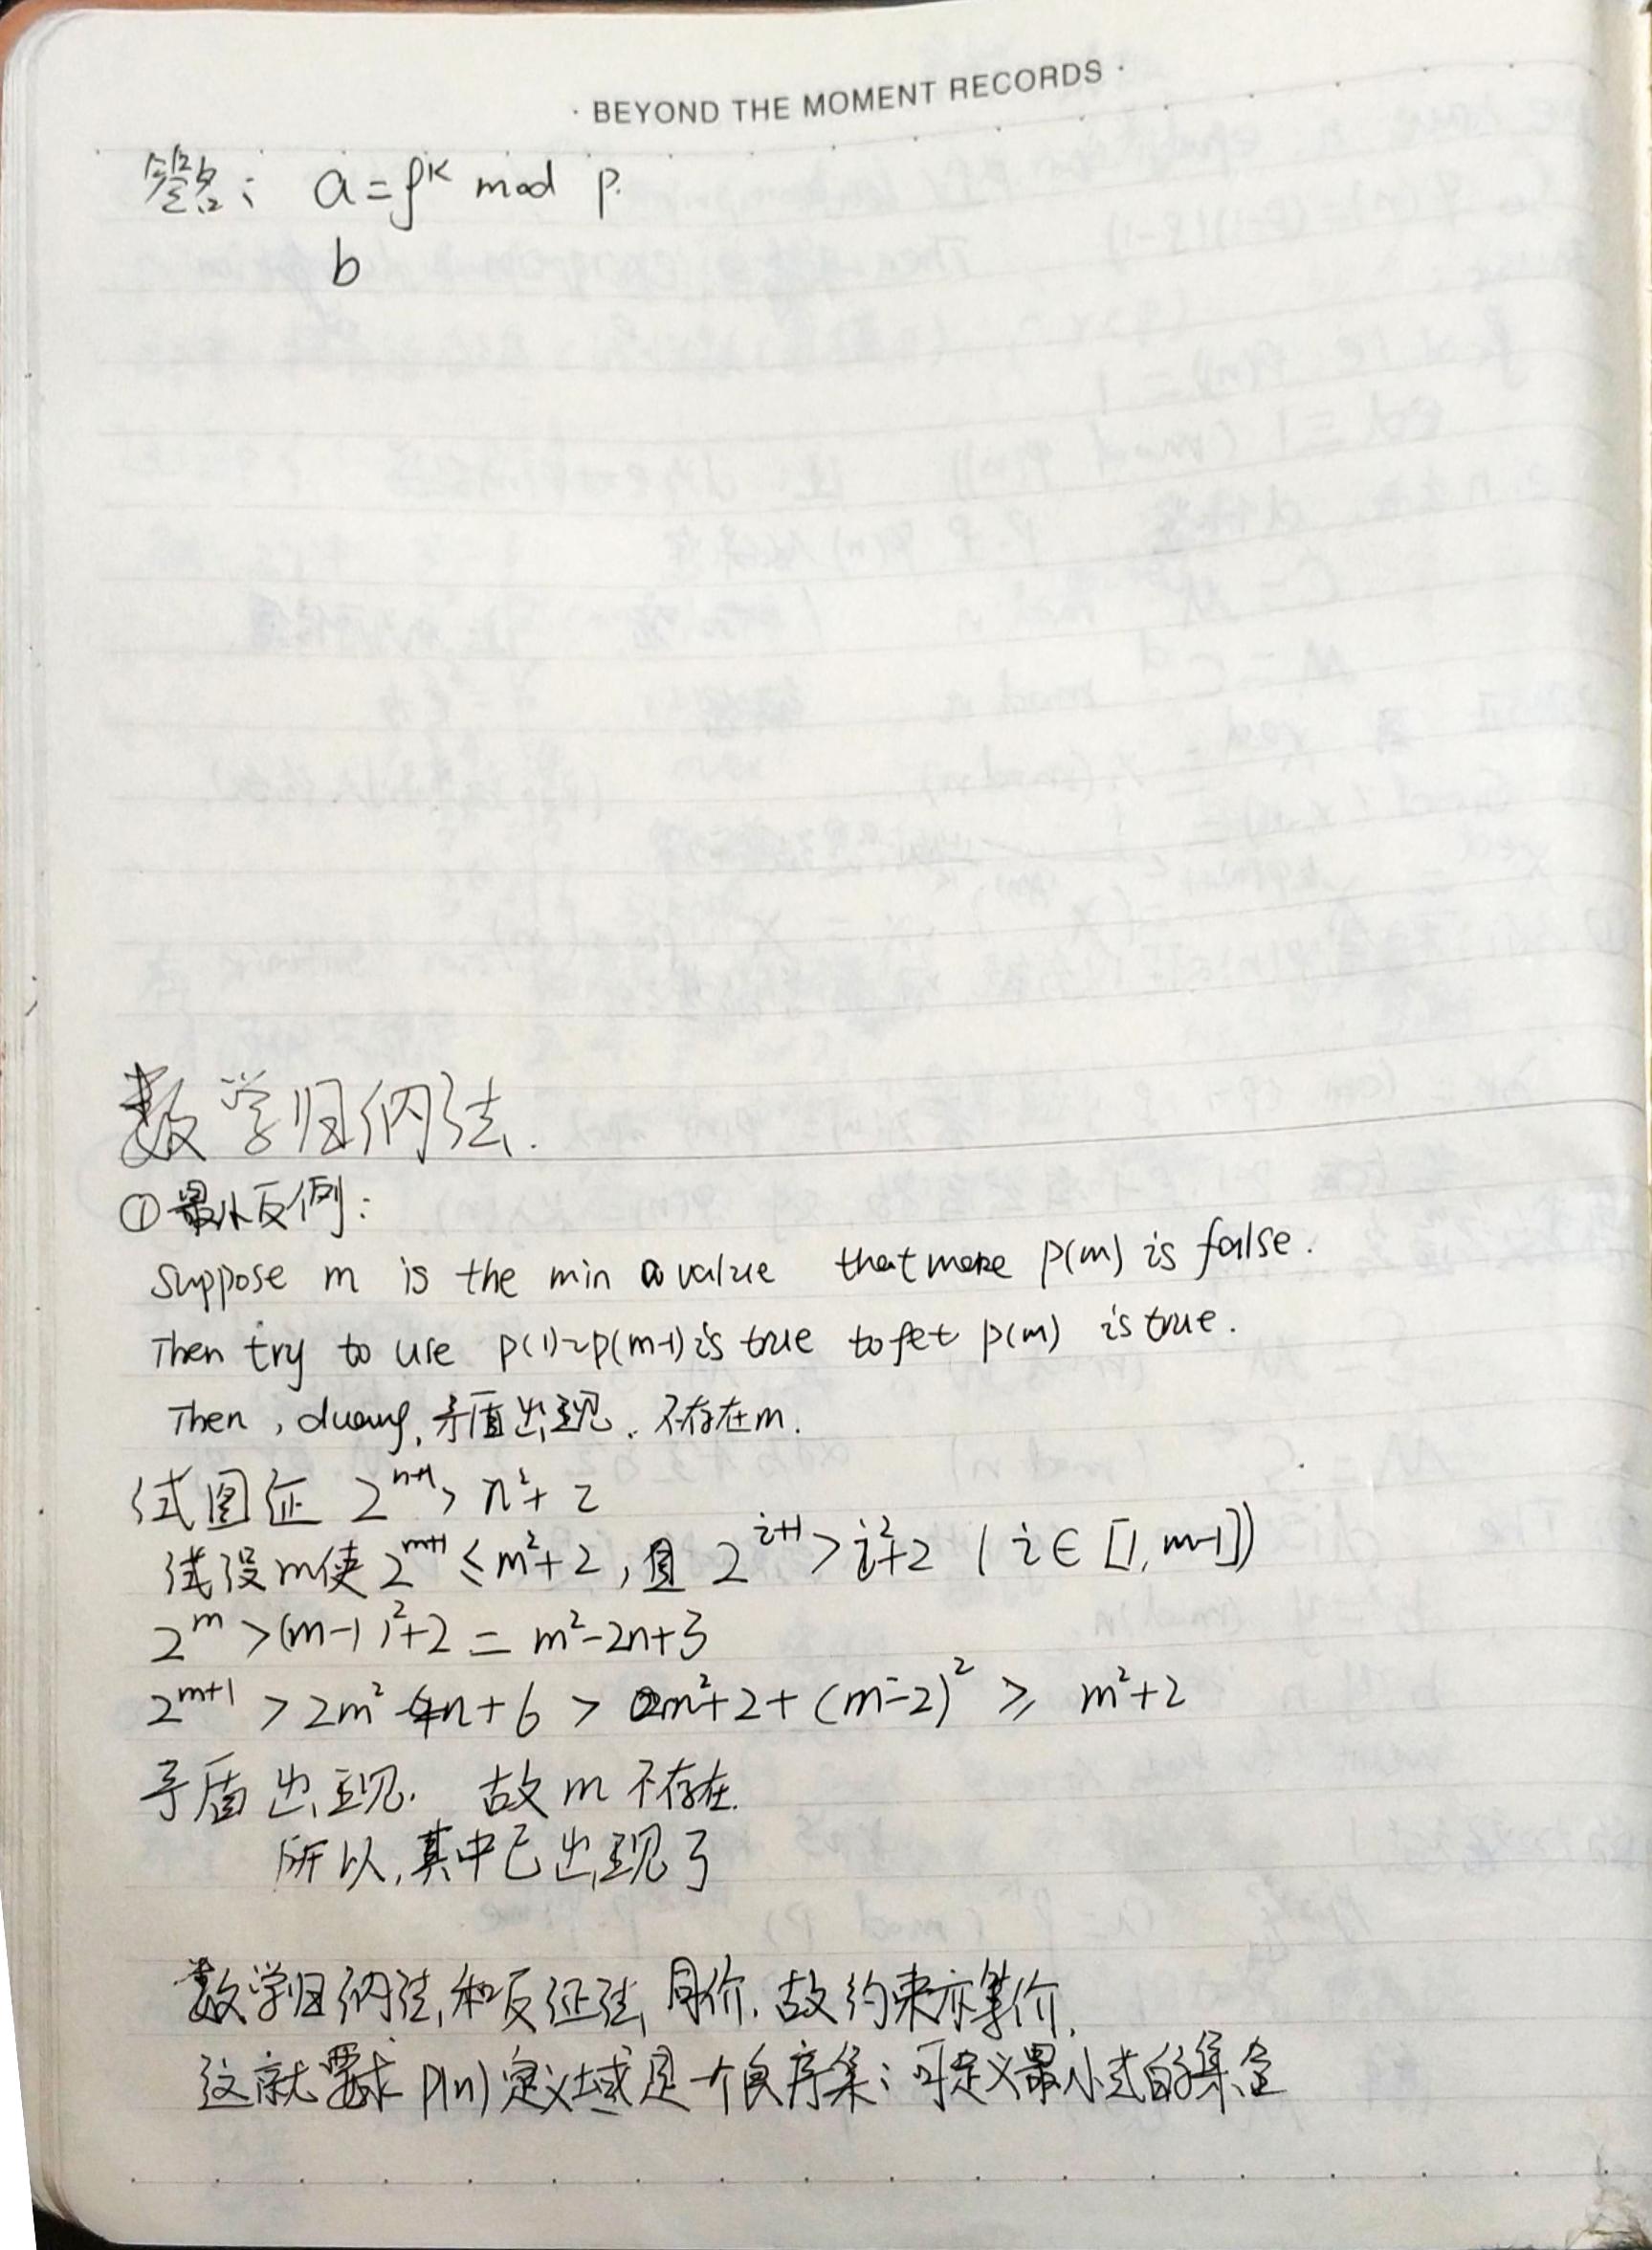 · BEYOND THE MOMENT RECORDS ·
签名: a=g^k mod p.
b
数学归纳法.
① 最小反例:
Suppose m is the min a value that make p(m) is false.
Then try to use p(1)~p(m-1) is true to get p(m) is true.
Then , duang, 矛盾出现. 不存在m.
试图证 2^{n+1} > n^2 + 2
试设m使 2^{m+1} ≤ m^2+2 , 且 2^{i+1} > i^2+2 ( i ∈ [1, m-1])
2^m > (m-1)^2+2 = m^2-2n+3
2^{m+1} > 2m^2-4n+6 > m^2+2+(m-2)^2 ≥ m^2+2
矛盾出现. 故m不存在.
所以,其中已出现了
数学归纳法,和反证法,同价.故约束亦等价.
这就要求 P(n)定义域是一个良序集:可定义最小式的集合